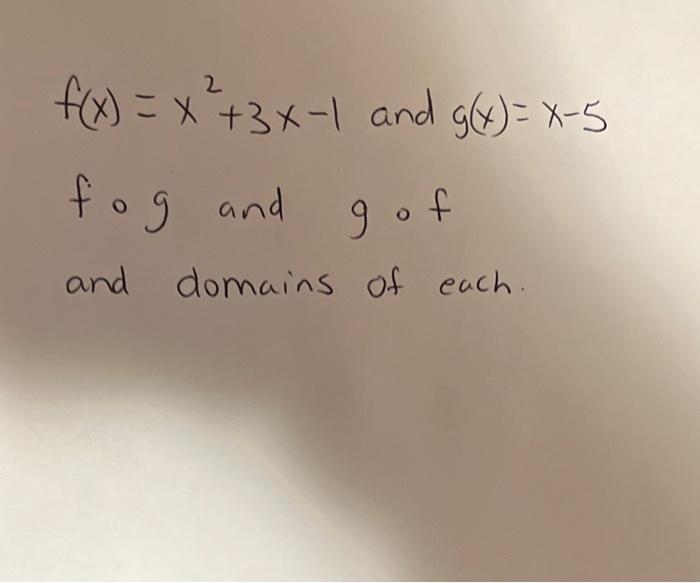 f(x) = x²+3x-1 and g(x)= x-5
f∘g and g∘f
and domains of each.